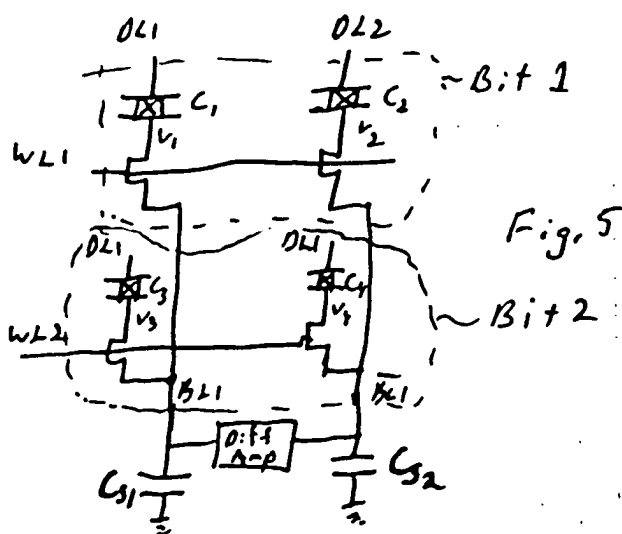 DL1 DL2
Bit 1
C1 C2
V1 V2
WL1
Fig. 5
DL1 DL1
C3 C4
V3 V4
Bit 2
WL2
BL1 B̅L̅1̅
Diff
Amp
CS1 CS2